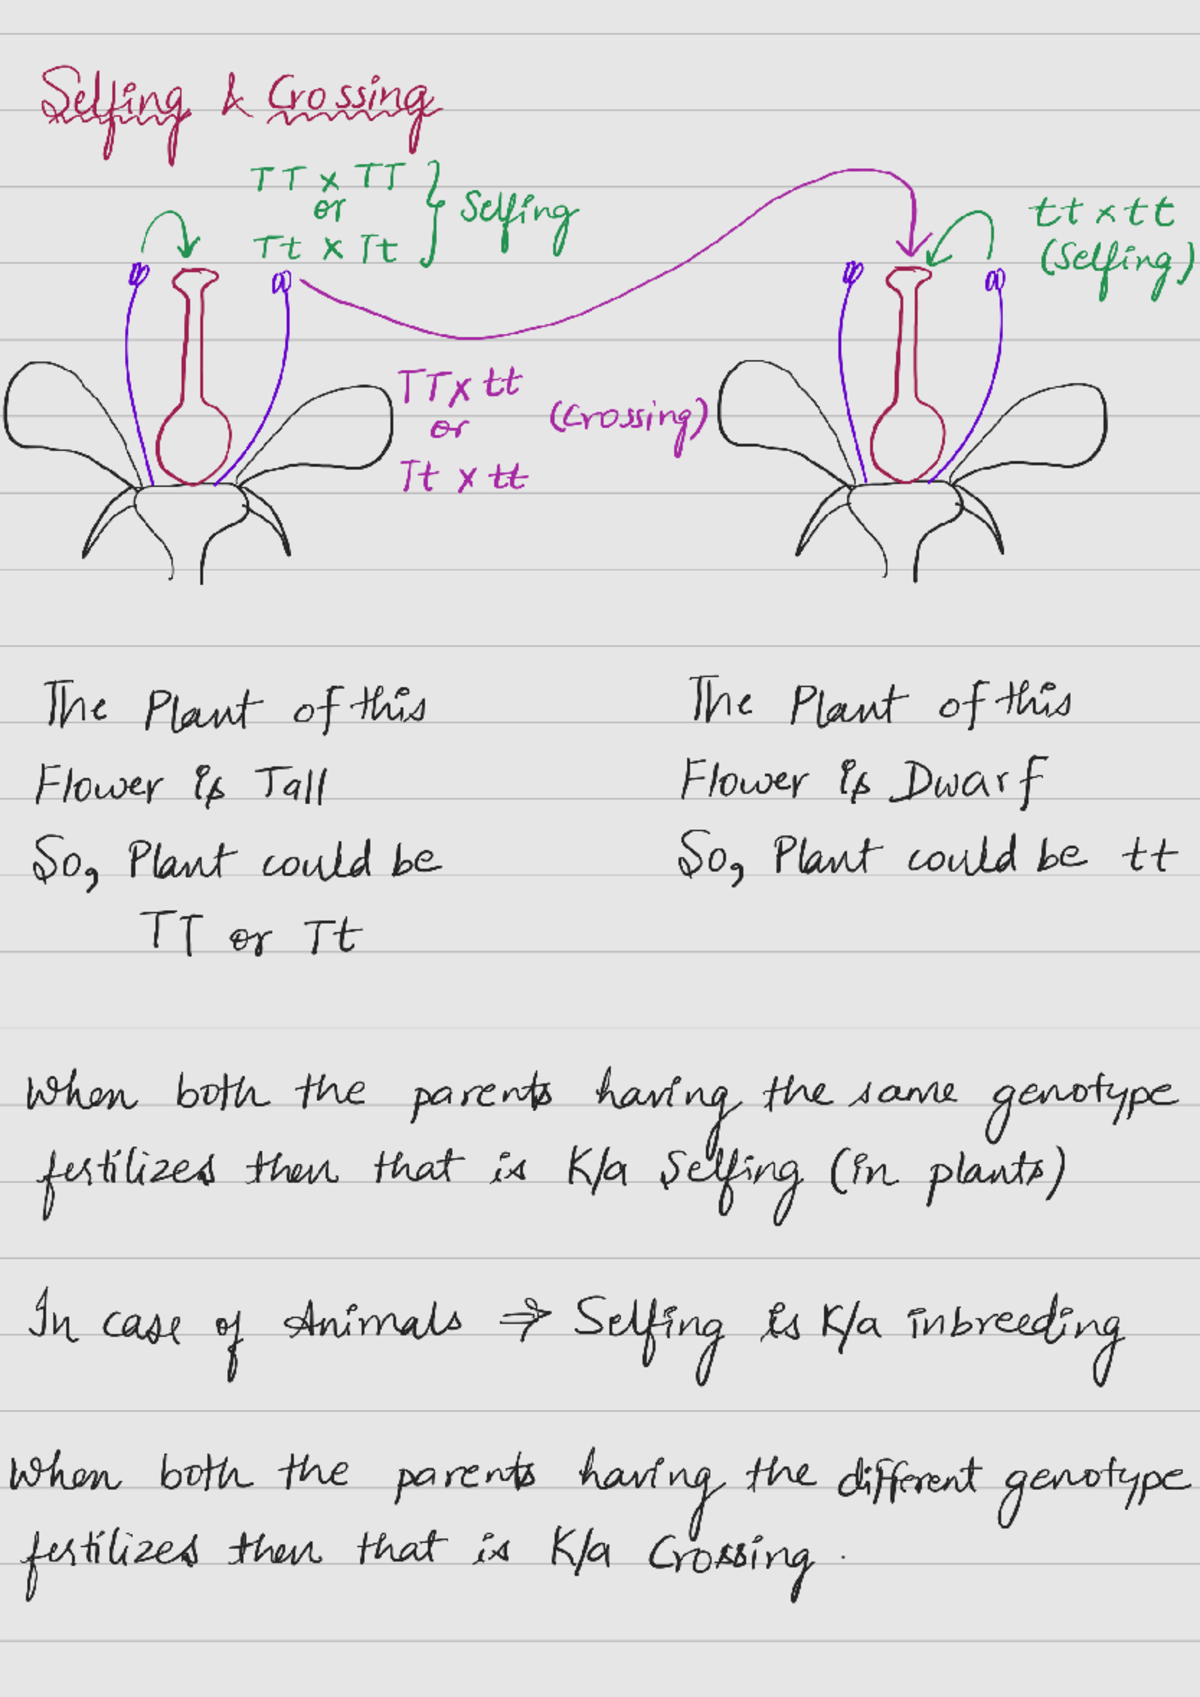 Selfing & Crossing
TT x TT
or
Tt x Tt
} Selfing
tt x tt
(Selfing)
TT x tt
or
Tt x tt
(Crossing)
The Plant of this
Flower is Tall
So, Plant could be
TT or Tt
The Plant of this
Flower is Dwarf
So, Plant could be tt
When both the parents having the same genotype
fertilizes then that is K/a Selfing (in plants)
In case of Animals ⇒ Selfing is K/a inbreeding
When both the parents having the different genotype
fertilizes then that is K/a Crossing.